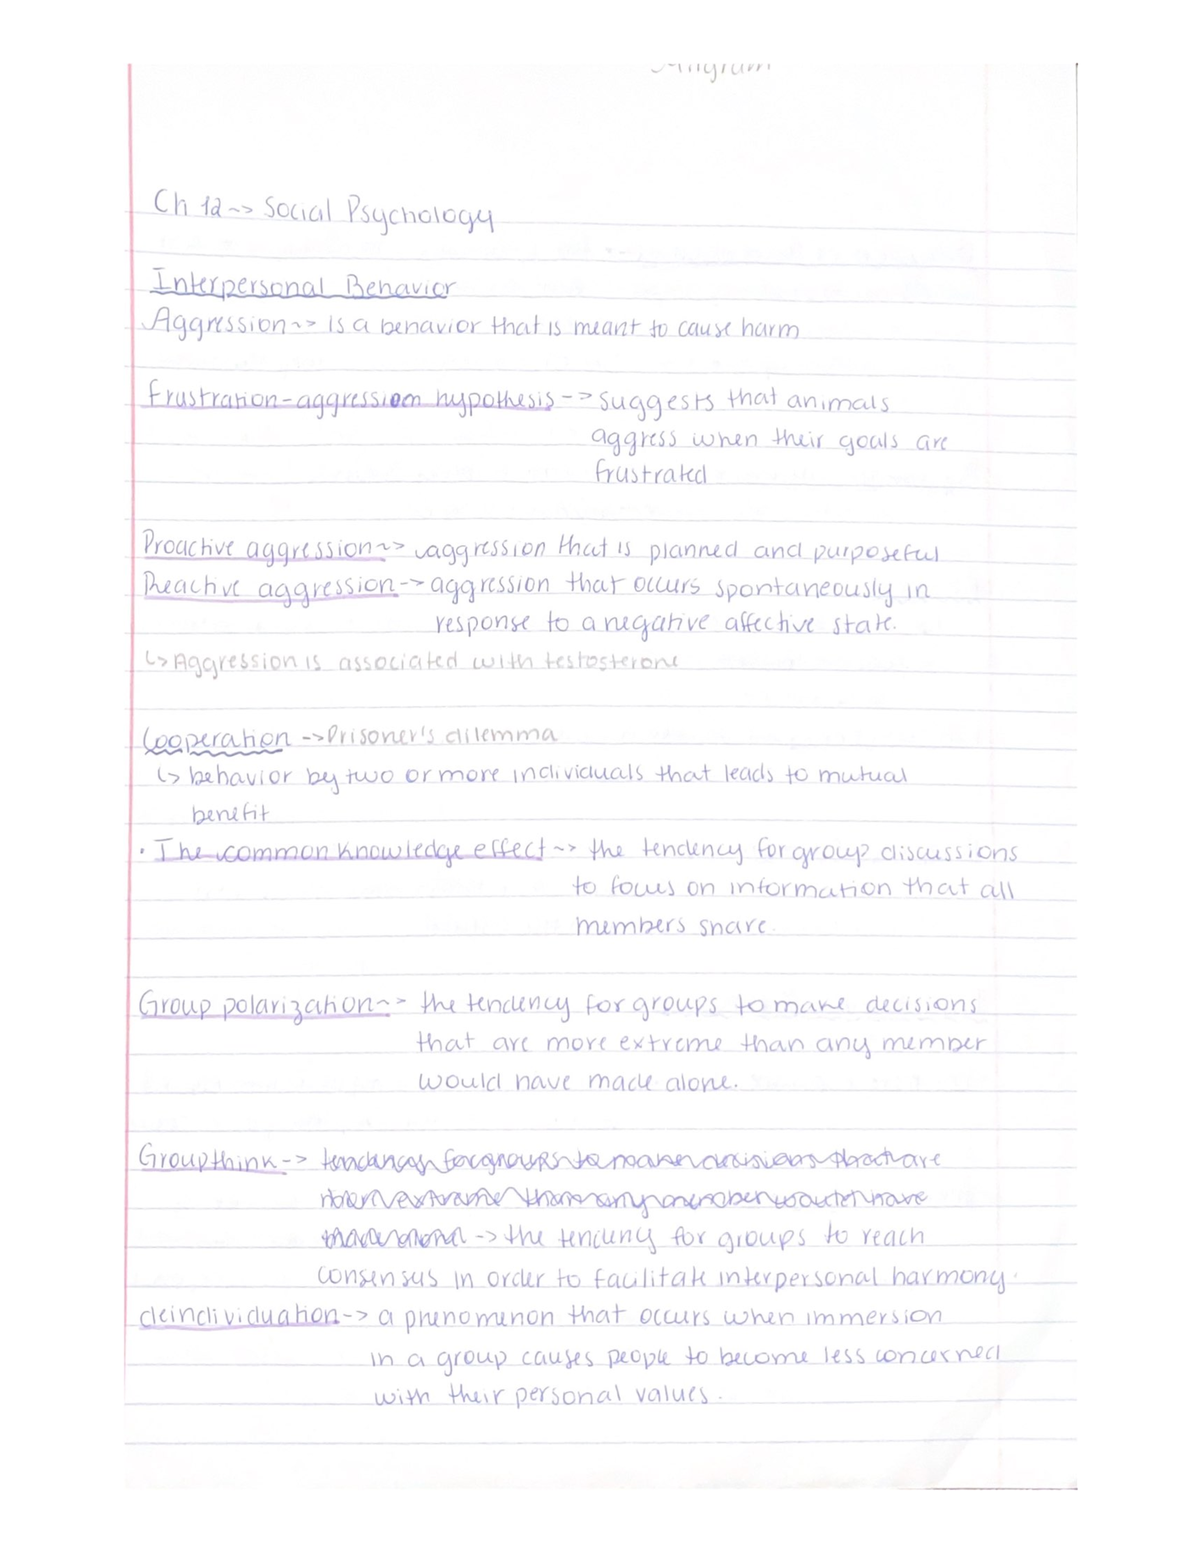 Milgram
Ch 12 ~> Social Psychology
Interpersonal Behavior
Aggression ~> is a behavior that is meant to cause harm
frustration-aggression hypothesis -> suggests that animals
aggress when their goals are
frustrated
Proactive aggression ~> aggression that is planned and purposeful
Reactive aggression -> aggression that occurs spontaneously in
response to a negative affective state.
↳ Aggression is associated with testosterone
Cooperation -> Prisoner's dilemma
↳ behavior by two or more individuals that leads to mutual
benefit
• The common knowledge effect ~> the tendency for group discussions
to focus on information that all
members share.
Group polarization ~> the tendency for groups to make decisions
that are more extreme than any member
would have made alone.
Groupthink -> tendency for groups to make decisions that are
more extreme than any member would have
made alone -> the tendency for groups to reach
consensus in order to facilitate interpersonal harmony.
deindividuation -> a phenomenon that occurs when immersion
in a group causes people to become less concerned
with their personal values.